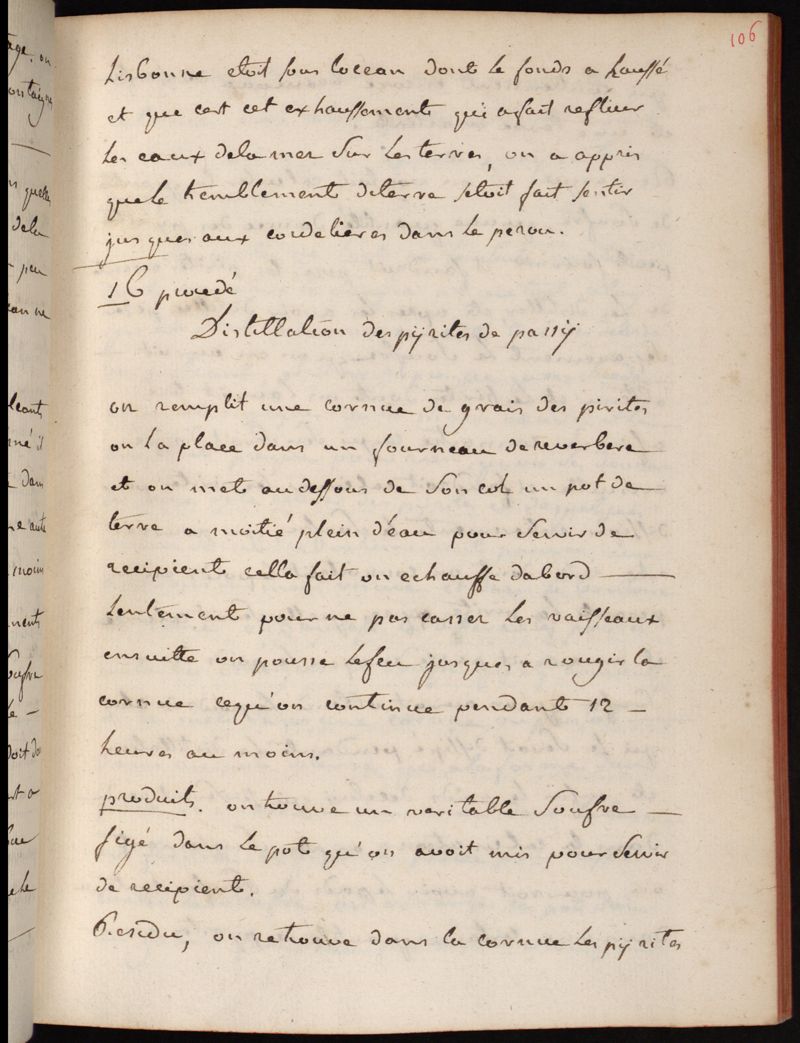 106
Lisbonne etoit sous locean dont le fonds a haussé
et que cest cet exhaussements qui afait refluer
les eaux dela mer sur les terres, on a appris
que le tremblement deterre setoit fait sentir
jusques aux cordelieres dans le perou.
16 procedé
Distillation des pyrites de passy
on remplit une cornue de grais des pirites
on la place dans un fourneau de reverbere
et on met audessous de son col un pot de
terre a moitié plein d'eau pour servir de
recipient cella fait on echauffe dabord —
lentement pour ne pas casser les vaisseaux
ensuitte on pousse lefeu jusques a rougir la
cornue cequ'on continue pendant 12 —
heures au moins.
produits. on trouve un veritable soufre —
figé dans le pot qu'on avoit mis pour servir
de recipient.
Residu, on retrouve dans la cornue les pyrites